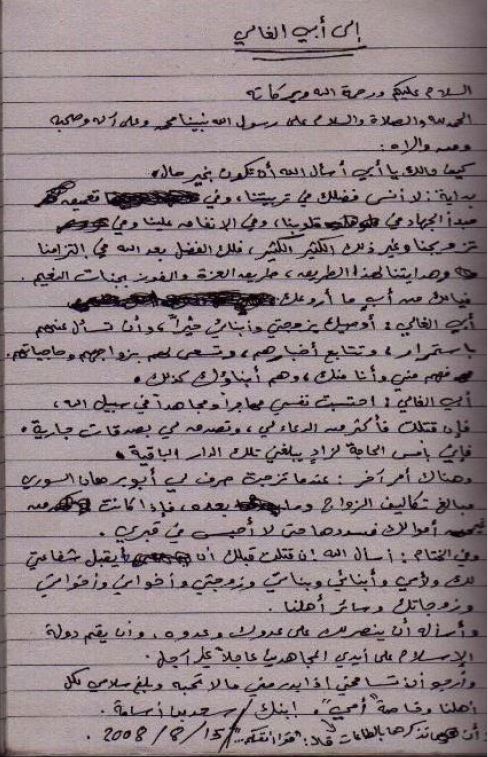 إلى أبي الغالي
السلام عليكم ورحمة الله وبركاته
الحمد لله والصلاة والسلام على رسول الله نبينا محمد وعلى آله وصحبه
ومن والاه :
كيف حالك يا أبي أسأل الله أن تكون بخير حال،
بداية: لا أنس فضلك في تربيتنا، وفي تعميق
مبدأ الجهاد في قلوبنا، وفي الإنفاق علينا وفي
تزويجنا وغير ذلك الكثير الكثير، فلك الفضل بعد الله في التزامنا
وهدايتنا لهذا الطريق، طريق العزة والفوز بجنات النعيم.
فيالك من أبٍ ما أروعك
أبي الغالي: أوصيك بزوجتي وأبنائي خيراً، وأن تسأل عنهم
باستمرار، وتتابع أخبارهم، وتسعى لهم بزواجهم وحاجياتهم.
فهم مني وأنا منك، وهم أبناؤك كذلك.
أبي الغالي: احتسبت نفسي مهاجراً ومجاهداً في سبيل الله،
فإن قتلت فأكثر من الدعاء لي، وتصدق لي بصدقات جارية.
فإني بأمس الحاجة لزادٍ يبلغني تلك الدار الباقية.
وهناك أمر آخر: عندما تزوجت صرف لي أبو برهان السوري
مبالغ تكاليف الزواج وما بعده، فإذا كانت من
أموالك فسددها حتى لا أحبس في قبري.
وفي الختام: أسأل الله إن قتلت قبلك أن يقبل شفاعتي
لك ولأمي وأبنائي وبناتي وزوجتي وأخواني وأخواتي
وزوجاتك وسائر أهلنا.
وأسأله أن ينصرك على عدوك وعدوه، وأن يقيم دولة
الإسلام على أيدي المجاهدين عاجلاً غير آجل.
وأرجو أن تسامحني إذا بدر مني ما لا تحبه وبلغ سلامي لكل
أهلنا وخاصة "أمي". ابنك/ سعد بن أسامة.
15/8/2008.